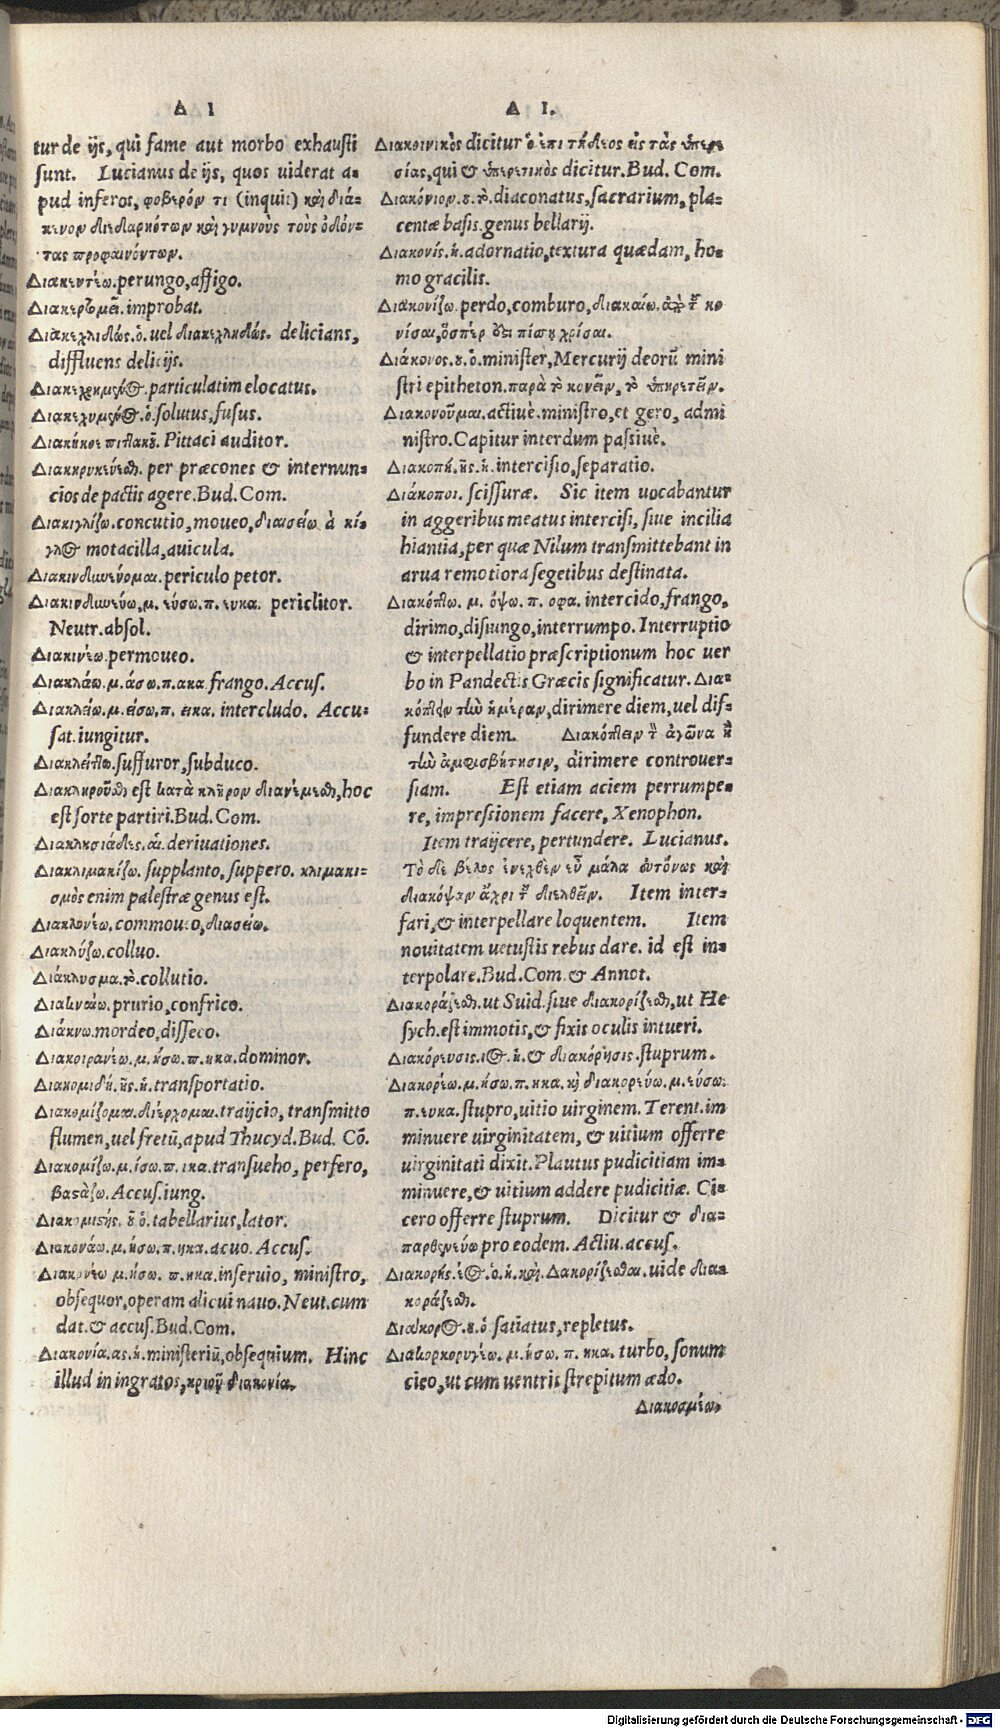 Δ I
tur de ijs, qui fame aut morbo exhausti
sunt. Lucianus de ijs, quos uiderat a-
pud inferos, φοβερόν τι (inquit) καὶ διά-
κενον δεδορκότων καὶ γυμνοὺς τοὺς ὀδόν-
τας προφαινόντων.
Διακεντέω. perungo, affigo.
improbat.
Διακεχλιδώς. ὁ. uel διακεχληδώς. delicians,
diffluens delicijs.
particulatim elocatus.
Διακεχυμένος. ὁ. solutus, fusus.
Διακήκοε πιττακοῦ. Pittaci auditor.
Διακηρυκεύεσθαι. per præcones & internun-
cios de pactis agere. Bud. Com.
Διακιγκλίζω. concutio, moueo, διασείω ἀ κί-
γκλος motacilla, auicula.
Διακινδυνεύομαι. periculo petor.
Διακινδυνεύω, μ. εύσω. π. ευκα. periclitor.
Neutr. absol.
Διακινέω. permoueo.
Διακλάω. μ. άσω. π. ακα frango. Accus.
Διακλείω. μ. είσω, π. εικα. intercludo. Accu-
sat. iungitur.
Διακλέπτω. suffuror, subduco.
Διακληροῦσθαι est κατὰ κλῆρον διανέμεσθαι, hoc
est sorte partiri. Bud. Com.
Διακλησιάδες. αἱ. deriuationes.
Διακλιμακίζω. supplanto, suppero. κλιμακι-
σμὸς enim palestræ genus est.
Διακλονέω. commoueo, διασείω.
Διακλύζω. colluo.
Διάκλυσμα. τὸ. collutio.
Διακναίω. prurio, confrico.
Διάκνω. mordeo, disseco.
Διακοιρανέω. μ. ήσω. π. ηκα. dominor.
Διακομιδή. ῆς. ἡ. transportatio.
Διακομίζομαι. διέρχομαι. traijcio, transmitto
flumen, uel fretũ, apud Thucyd. Bud. Cõ.
Διακομίζω. μ. ίσω. π. ικα. transueho, perfero,
βαστάζω. Accus. iung.
Διακομιστής. οῦ ὁ. tabellarius, lator.
Διακονάω. μ. ήσω. π. ηκα. acuo. Accus.
Διακονέω μ. ήσω. π. ηκα. inseruio, ministro,
obsequor, operam alicui nauo. Neut. cum
dat. & accus. Bud. Com.
Διακονία. ας. ἡ. ministeriũ, obsequium. Hinc
illud in ingratos, κριοῦ διακονία.
Δ I.
Διακονικὸς dicitur ὁ ἐπιτήδειος εἰς τὰς ὑπηρε
σίας, qui & ὑπηρετικὸς dicitur. Bud. Com.
Διακόνιον. ου. τὸ. diaconatus, sacrarium, pla-
centæ basis. genus bellarij.
Διακονίς. ἡ. adornatio, textura quædam, ho-
mo gracilis.
Διακονίζω. perdo, comburo, διακαίω. ἀπὸ τοῦ κο
νίσαι, ὅσπερ
Διάκονος. ου. ὁ. minister, Mercurij deorũ mini
stri epitheton. παρὰ τὸ κονεῖν, τὸ ὑπηρετεῖν.
Διακονοῦμαι. actiuè. ministro, et gero, admi
nistro. Capitur interdum passiuè.
Διακοπή. ῆς. ἡ. intercisio, separatio.
Διάκοποι. scissuræ. Sic item uocabantur
in aggeribus meatus intercisi, siue incilia
hiantia, per quæ Nilum transmittebant in
arua remotiora segetibus destinata.
Διακόπτω. μ. όψω. π. οφα. intercido, frango,
dirimo, disiungo, interrumpo. Interruptio
& interpellatio præscriptionum hoc uer
bo in Pandectis Græcis significatur. Δια-
κόπτειν τὴν ἡμέραν, dirimere diem, uel dif-
fundere diem. Διακόπτειν τὸν ἀγῶνα ἢ
τὴν ἀμφισβήτησιν, dirimere controuer-
siam. Est etiam aciem perrumpe-
re, impressionem facere, Xenophon.
Item traijcere, pertundere. Lucianus.
Τὸ δὲ βέλος ἐνεχθὲν εὖ μάλα εὐτόνως καὶ
διακόψαν ἄχρι τοῦ διελθεῖν. Item inter-
fari, & interpellare loquentem. Item
nouitatem uetustis rebus dare. id est in-
terpolare. Bud. Com. & Annot.
Διακοράζεσθαι. ut Suid. siue διακορίζεσθαι, ut He
sych. est immotis, & fixis oculis intueri.
Διακόρευσις. ιος. ἡ. & διακόρησις. stuprum.
Διακορέω. μ. ήσω. π. ηκα. καὶ διακορεύω. μ. εύσω.
π. ευκα. stupro, uitio uirginem. Terent. im
minuere uirginitatem, & uitium offerre
uirginitati dixit. Plautus pudicitiam im-
minuere, & uitium addere pudicitiæ. Ci-
cero offerre stuprum. Dicitur & δια-
παρθενεύω pro eodem. Actiu. accus.
Διακορής. έος. ὁ. ἡ. καὶ. Δακορίζεσθαι. uide δια-
κοράζεσθαι.
Διάκορος. ου. ὁ satiatus, repletus.
Διακορκορυγέω. μ. ήσω. π. ηκα. turbo, sonum
cieo, ut cum uentris strepitum ædo.
Διακοσμέω.
Digitalisierung gefördert durch die Deutsche Forschungsgemeinschaft - DFG